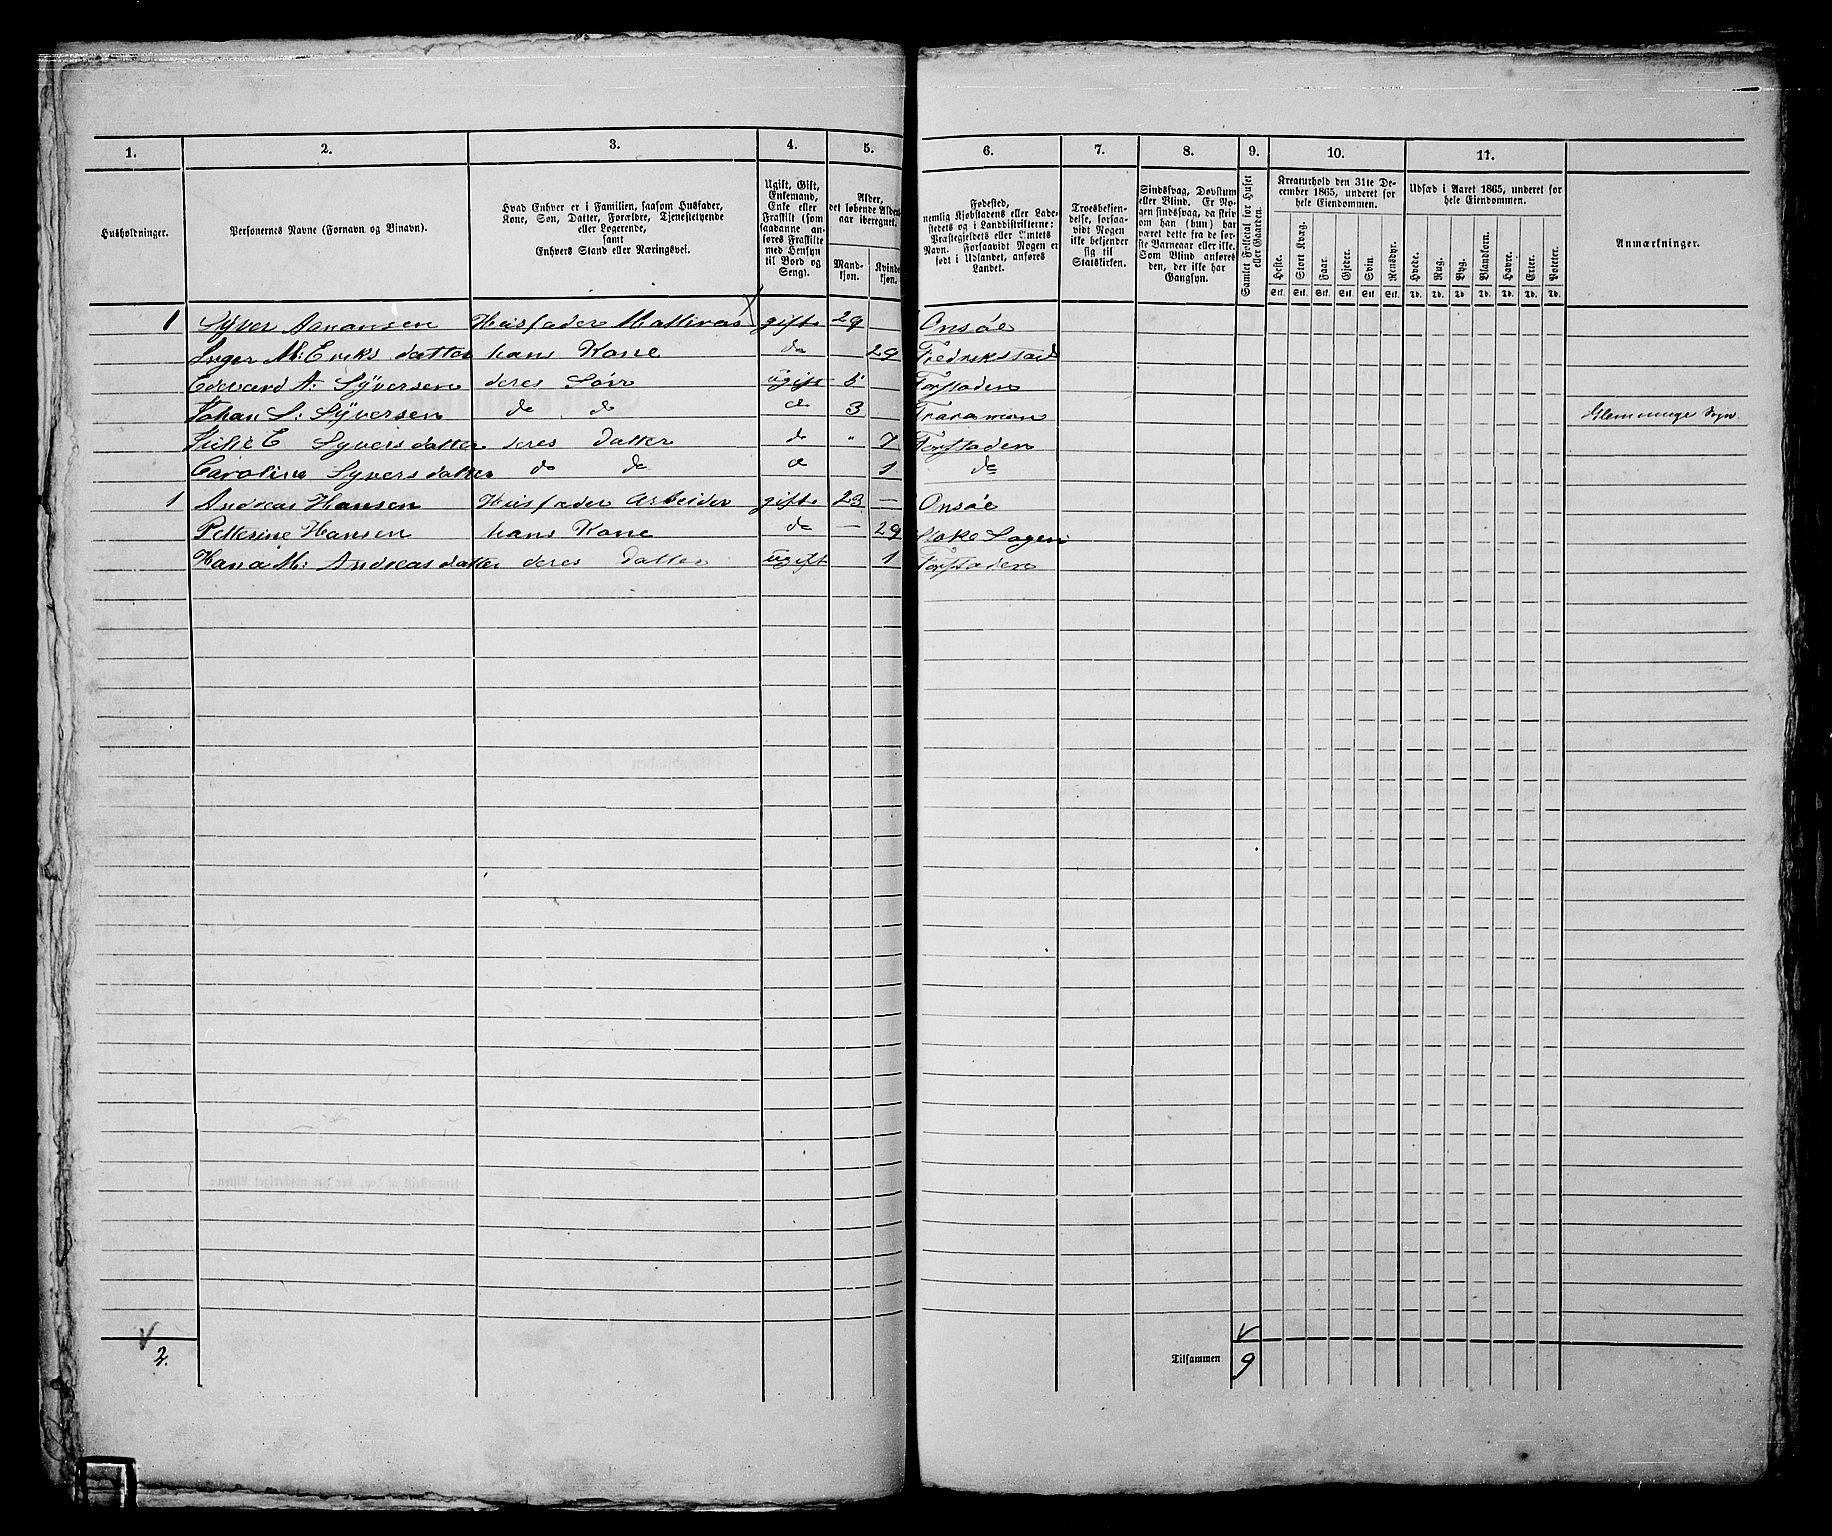 1. 2. 3. 4. 5. 6. 7. 8. 9. 10. 11.
Husholdninger.
Personernes Navne (Fornavn og Binavn).
Hvad Enhver er i Familien, saasom Husfader,
Kone, Søn, Datter, Forældre, Tjenestetyende
eller Logerende,
samt
Enhvers Stand eller Næringsvei.
Ugift, Gift,
Enkemand,
Enke eller
Fraskilt (som
saadanne an-
føres Fraskilte
med Hensyn
til Bord og
Seng).
Alder,
det løbende Alders-
aar iberegnet.
Mand-
kjøn.
Kvinde-
kjøn.
Fødested,
nemlig Kjøbstadens eller Lade-
stedets og i Landdistrikterne:
Præstegjeldets eller Amtets
Navn. Forsaavidt Nogen er
født i Udlandet, anføres
Landet.
Troesbekjen-
delse, forsaa-
vidt Nogen
ikke bekjender
sig til
Statskirken.
Sindssvag, Døvstum
eller Blind. Er No-
gen sindssvag, da skriv
om han (hun) har
været dette fra de før-
ste Barneaar eller ikke.
Som Blind anføres
den, der ikke har
Gangsyn.
Samlet Folketal for Huset
eller Gaarden.
Kreaturhold den 31te De-
cember 1865, underet for
hele Eiendommen.
Heste. Stort Kvæg. Faar. Gjeder. Svin. Rensdyr.
Stk. Stk. Stk. Stk. Stk. Stk.
Udsæd i Aaret 1865, underet for
hele Eiendommen.
Hvede. Rug. Byg. Blandkorn. Havre. Erter. Poteter.
Td. Td. Td. Td. Td. Td. Td.
Anmærkninger.
1 Syver Hansen Husfader Matros gift 29 Onsøe
Inger M: Eriks datter hans Kone do 29 Fredrikstad
Edevard A. Syversen deres Søn ugift 5 Forstaden
Johan S: Syversen do do d 3 Glemminge Sogn
E Syvers datter deres datter do " 7 Forstaden
Caroline Syvers datter do do d 1 do
1 Andreas Hansen Husfader Arbeider gift 23 — Onsøe
Petterine Hansen hans Kone do — 29
Hana M: Andreas datter deres datter ugift 1 Forstaden
2.
Tilsammen 9